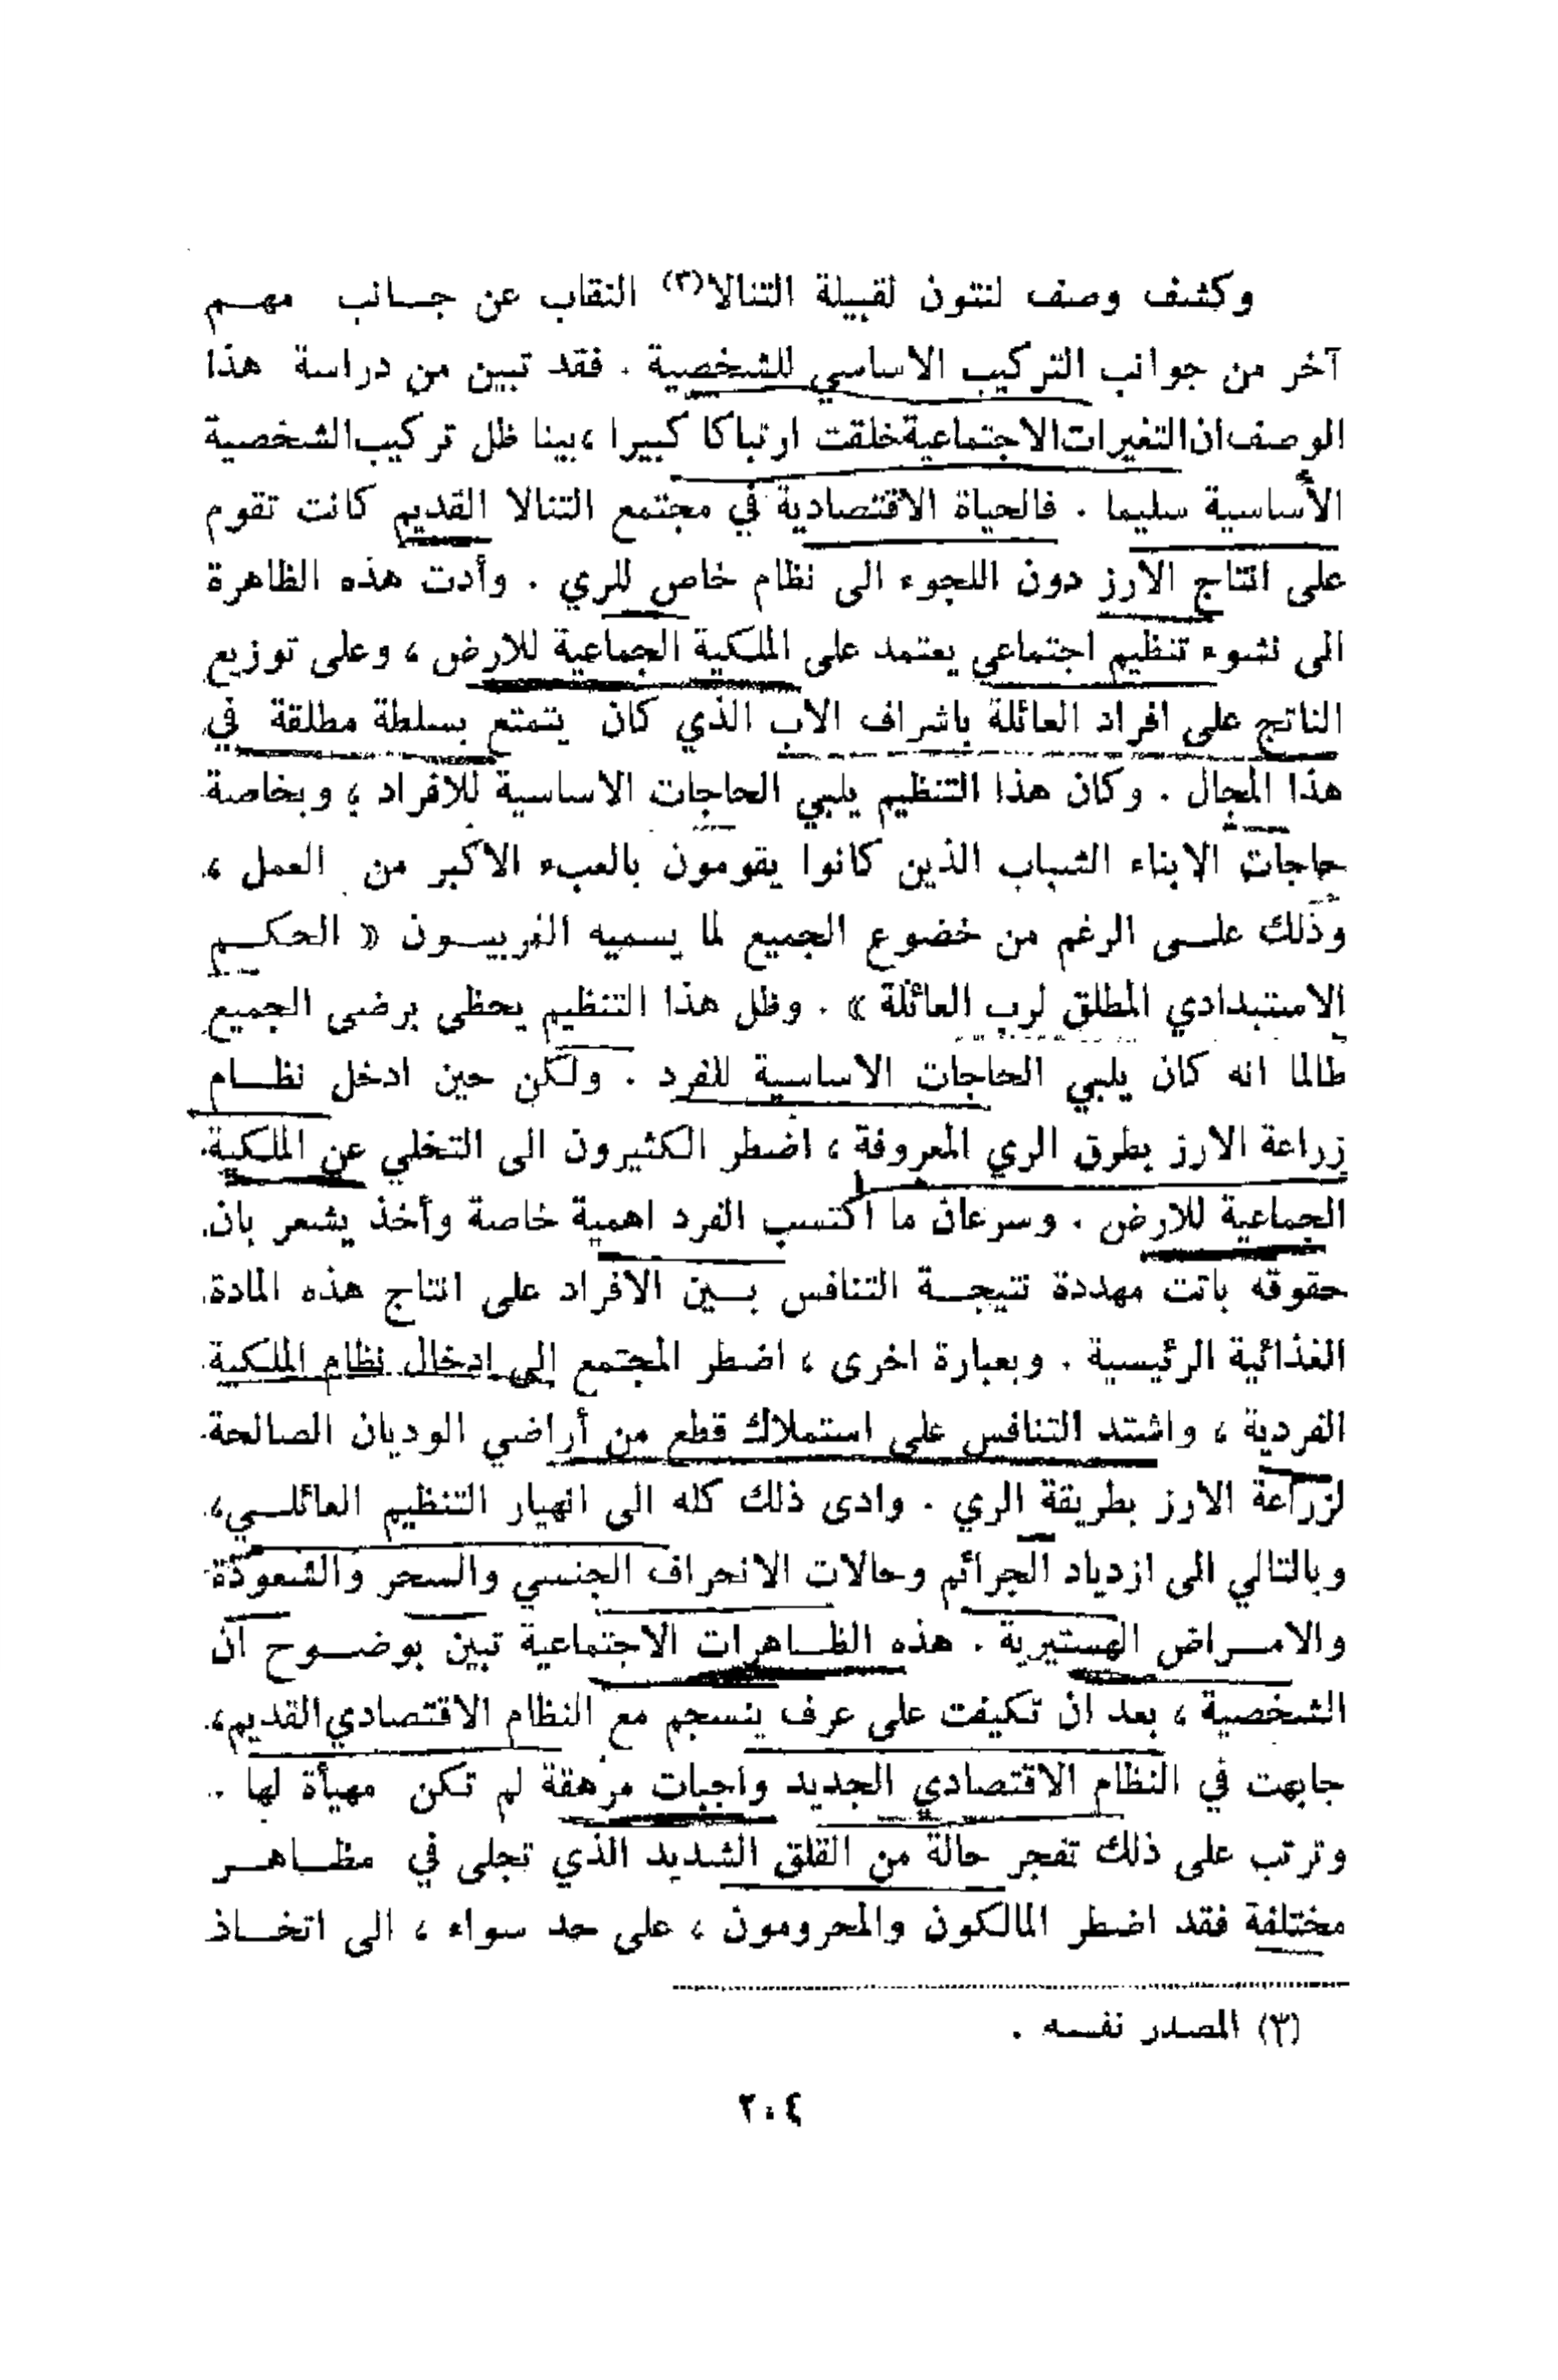 وكشف وصف لنتون لقبيلة التنالا(٣) النقاب عن جـانب مهـم
آخر من جوانب التركيب الاساسي للشخصية . فقد تبين من دراسة هذا
الوصف ان التغيرات الاجتماعية خلقت ارتباكا كبيرا ، بينا ظل تركيب الشخصية
الأساسية سليما . فالحياة الاقتصادية في مجتمع التنالا القديم كانت تقوم
على انتاج الارز دون اللجوء الى نظام خاص للري . وأدت هذه الظاهرة
الى نشوء تنظيم اجتماعي يعتمد على الملكية الجماعية للارض ، وعلى توزيع
الناتج على افراد العائلة باشراف الاب الذي كان يتمتع بسلطة مطلقة في
هذا المجال . وكان هذا التنظيم يلبي الحاجات الاساسية للافراد ، وبخاصة
حاجات الابناء الشباب الذين كانوا يقومون بالعبء الاكبر من العمل ،
وذلك علـى الرغم من خضوع الجميع لما يسميه الغربيـون « الحكـم
الاستبدادي المطلق لرب العائلة » . وظل هذا التنظيم يحظى برضى الجميع
طالما انه كان يلبي الحاجات الاساسية للفرد . ولكن حين ادخل نظـام
زراعة الارز بطرق الري المعروفة ، اضطر الكثيرون الى التخلي عن الملكية
الجماعية للارض . وسرعان ما اكتسب الفرد اهمية خاصة وأخذ يشعر بان
حقوقه باتت مهددة نتيجـة التنافس بـين الافراد على انتاج هذه المادة
الغذائية الرئيسية . وبعبارة اخرى ، اضطر المجتمع إلى ادخال نظام الملكية
الفردية ، واشتد التنافس على استملاك قطع من أراضي الوديان الصالحة
لزراعة الارز بطريقة الري . وادى ذلك كله الى انهيار التنظيم العائلـي،
وبالتالي الى ازدياد الجرائم وحالات الانحراف الجنسي والسحر والشعوذة
والامـراض الهستيرية . هذه الظـاهرات الاجتماعية تبين بوضـوح ان
الشخصية ، بعد ان تكيفت على عرف ينسجم مع النظام الاقتصادي القديم،
جابهت في النظام الاقتصادي الجديد واجبات مرهقة لم تكن مهيأة لها .
وترتب على ذلك تفجر حالة من القلق الشديد الذي تجلى في مظـاهـر
مختلفة فقد اضطر المالكون والمحرومون ، على حد سواء ، الى اتخـاذ
(٣) المصدر نفسه .
٢٠٤